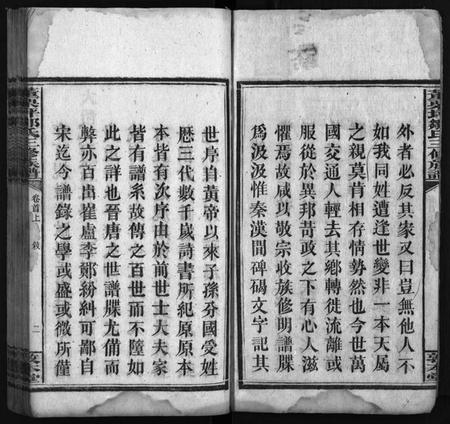 外者必反其家又曰豈無他人不
如我同姓遭逢世變非一本天屬
之親莫肯相存情勢然也今世萬
國交通人輕去其鄉轉徙流離或
服從於異邦苛政之下有心人滋
懼焉故咸以敬宗收族修明譜牒
為汲汲惟秦漢間碑碣文字記其
世序自黃帝以來子孫分國受姓
歷三代數千歲詩書所紀原原本
本皆有次序由於前世士大夫家
皆有譜系故傳之百世而不墮如
此之詳也晉唐之世譜牒尤備而
弊亦百出崔盧李鄭紛糾可鄙自
宋迄今譜錄之學或盛或微所僅
卷首上
敘
二
敦本堂